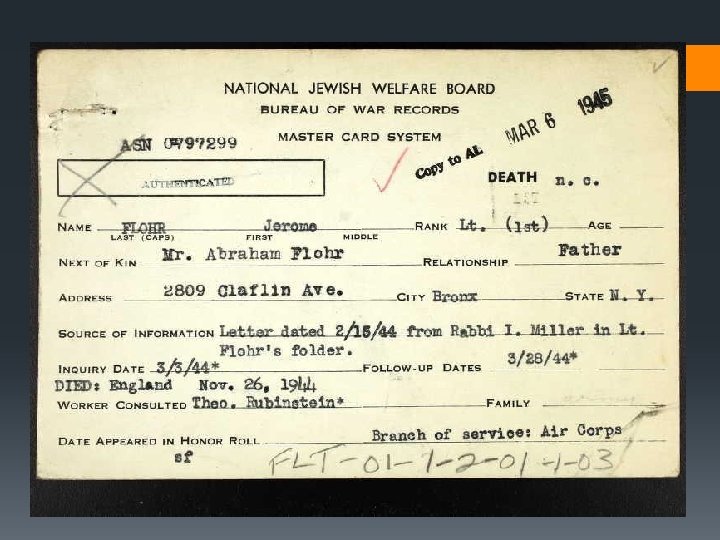 NATIONAL JEWISH WELFARE BOARD
BUREAU OF WAR RECORDS
MASTER CARD SYSTEM
ASN 0797299
MAR 6 1945
Copy to AL
AUTHENTICATED
DEATH n. c.
NAME FLOHR Jerome RANK Lt. (1st) AGE
LAST (CAPS) FIRST MIDDLE
NEXT OF KIN Mr. Abraham Flohr RELATIONSHIP Father
ADDRESS 2809 Claflin Ave. CITY Bronx STATE N. Y.
SOURCE OF INFORMATION Letter dated 2/15/44 from Rabbi I. Miller in Lt.
Flohr's folder.
INQUIRY DATE 3/3/44* FOLLOW-UP DATES 3/28/44*
DIED: England Nov. 26, 1944
WORKER CONSULTED Theo. Rubinstein* FAMILY
DATE APPEARED IN HONOR ROLL Branch of service: Air Corps
sf FLT-01-1-2-01-1-03